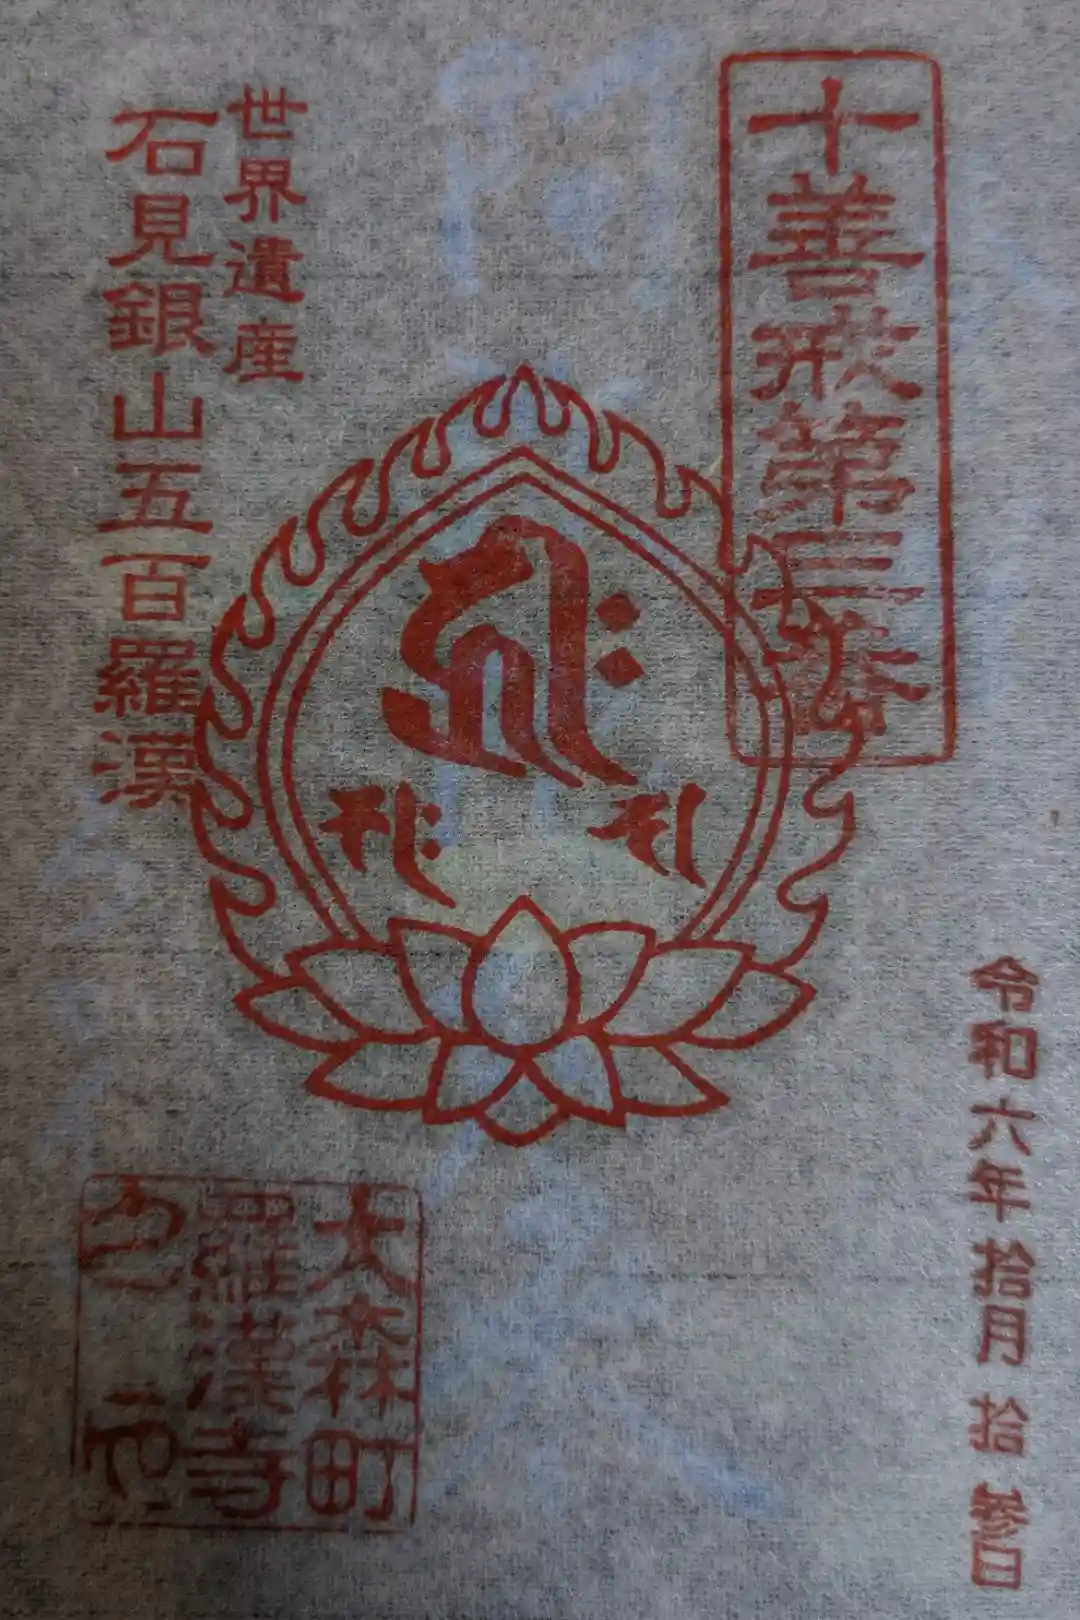 十善戒第三番
令和六年拾月拾参日
世界遺産
石見銀山五百羅漢
大森町
羅漢寺
之印